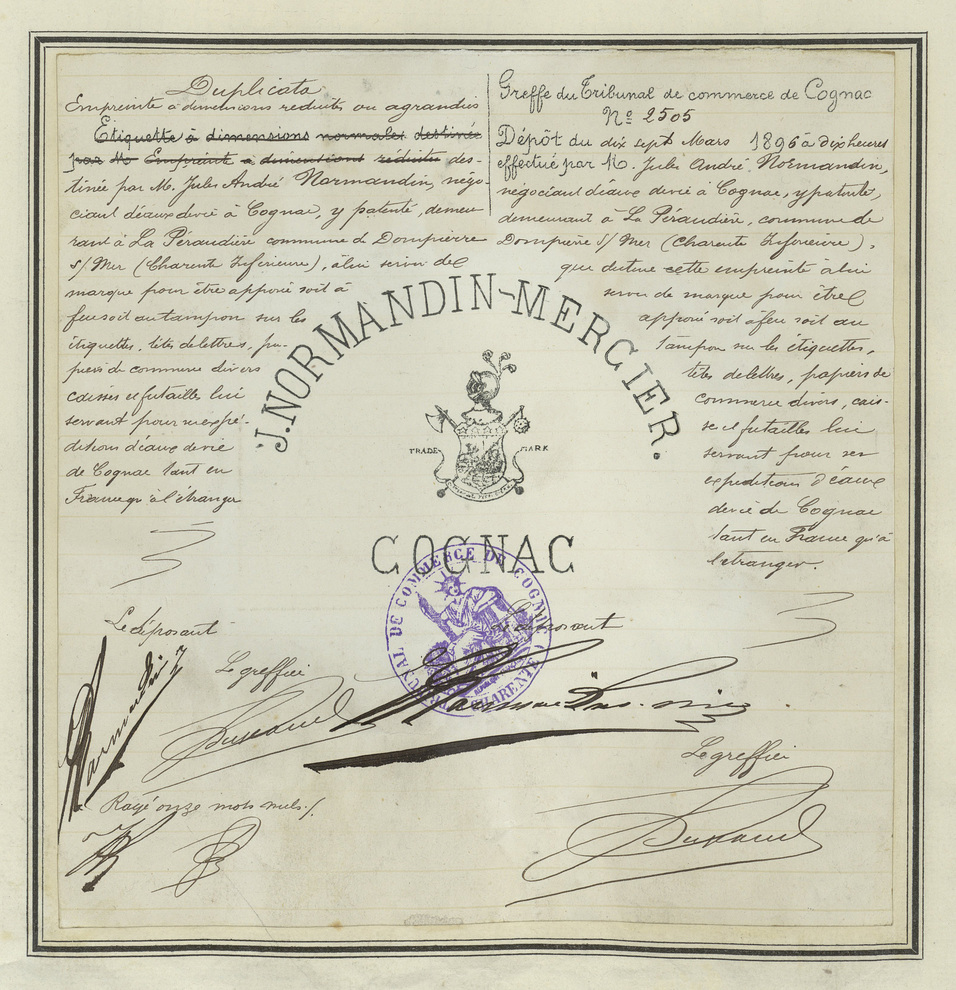 Duplicata
Empreinte à dimensions reduites ou agrandies
Etiquette à dimensions normales destinée
par Mr Empreinte à dimensions réduites des-
tinée par M. Jules André Normandin, négo-
ciant d'eaux de vie à Cognac, y patenté, demeu
rant à La Péraudière commune de Dompierre
s/ Mer (Charente Inférieure), à lui servir de
marque pour être apposé soit à
feu soit au tampon sur les
étiquettes, têtes de lettres, pa-
piers de commerce divers
caisses et futailles lui
servant pour ses expé-
ditions d'eaux de vie
de Cognac tant en
France qu'à l'étranger
Le déposant
Le greffier
Rayé onze mots nuls./.
Greffe du Tribunal de commerce de Cognac
Nº 2505
Dépôt du dix sept Mars 1896 à dix heures
effectué par M. Jules André Normandin,
négociant d'eaux de vie à Cognac, y patenté,
demeurant à La Péraudière, commune de
Dompierre S/ Mer (Charente Inférieure),
que destine cette empreinte à lui
servir de marque pour être
apposé soit à feu soit au
tampon sur les étiquettes,
têtes de lettres, papiers de
commerce divers, cais-
ses et futailles lui
servant pour ses
expeditions d'eaux
de vie de Cognac
tant en France qu'à
l'etranger.
J. NORMANDIN-MERCIER.
TRADE MARK
COGNAC
TRIBUNAL DE COMMERCE DE COGNAC (CHARENTE)
Le déposant
Le greffier